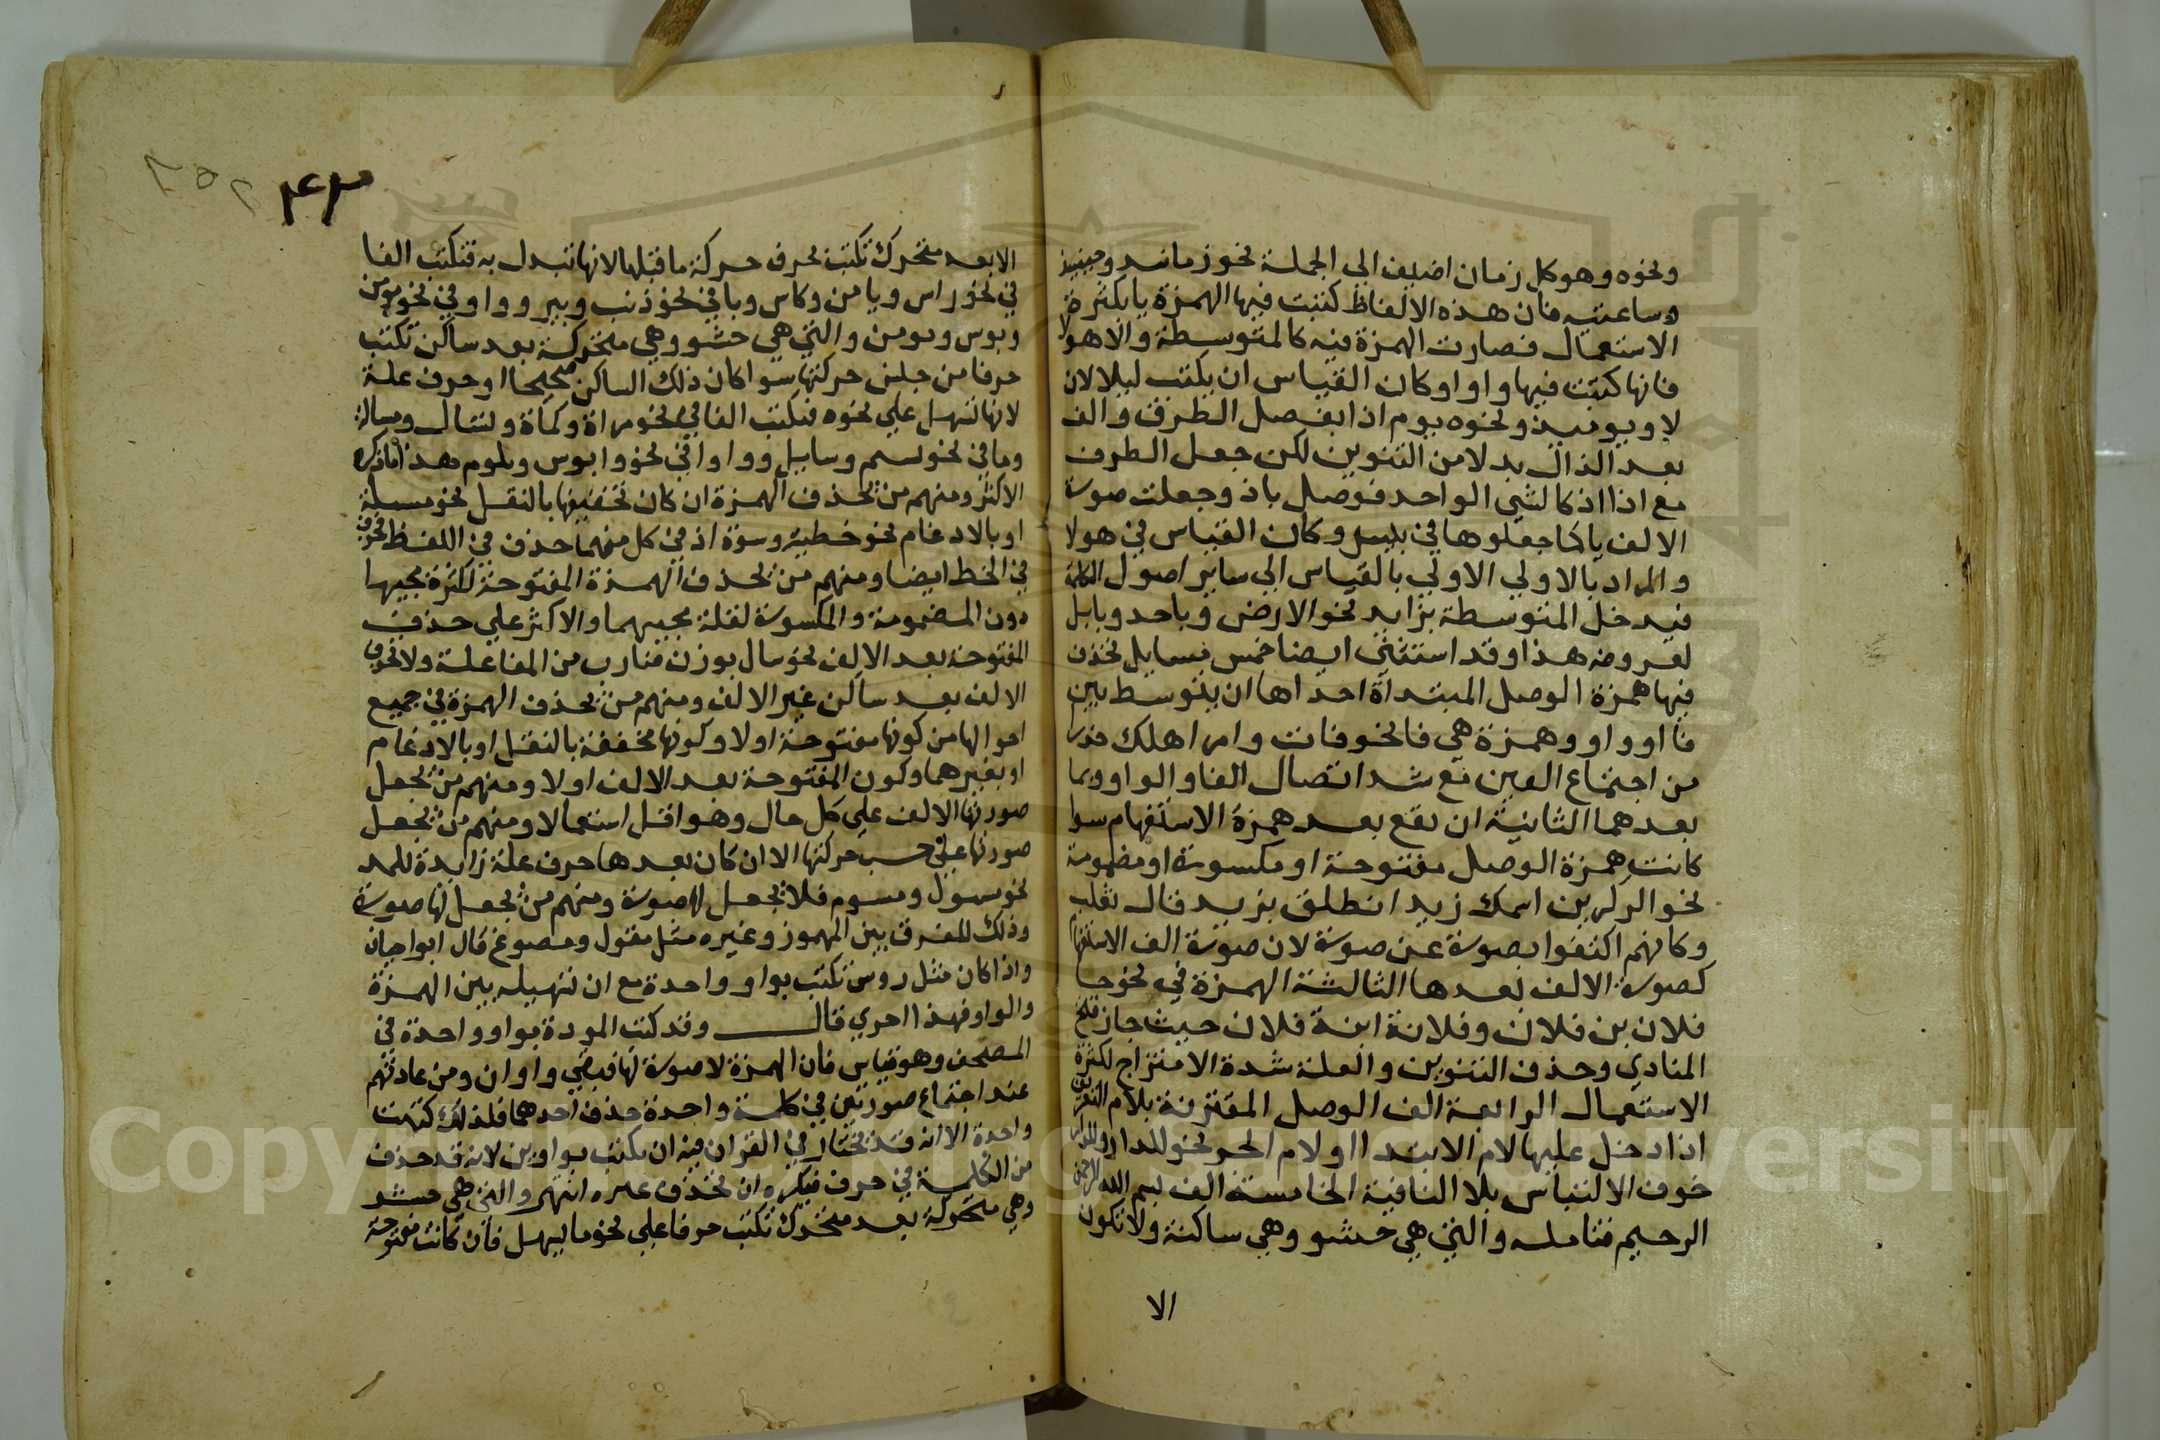 ونحوه وهو كل زمان اضيف الى الجملة نحو زمانيذ وحينيذ
وساعتيذ فان هذه الالفاظ كتبت فيها الهمزة يا بكثرة
الاستعمال فصارت الهمزة فيه كالمتوسطة والا هولا
فانها كتبت فيها واوا وكان القياس ان يكتب ليلا لان
لا ويوميذ ونحوه يوم اذا بفصل الظرف والف
بعد الذال بدلا من التنوين لكن جعل الظرف
مع اذا اذ كالشي الواحد فوصل باذ وجعلت صورة
الالف يا كما جعلوها في وكان القياس في هولا
والمراد بالاولي الاولي بالقياس الي ساير اصول الكلمة
فيدخل المتوسطة بزايد نحو الارض وباحد وبابل
لعروضه هذا وقد استثني ايضا خمس مسايل تحذف
فيها همزة الوصل المبتداة احداها ان يتوسط بين
فا او واو وهمزة هي فا نحو فات وامر اهلك حذرا
من اجتماع الفين مع شد اتصال الفا والواو وبما
بعدهما الثانية ان تقع بعد همزة الاستفهام سوا
كانت همزة الوصل مفتوحة او مكسورة او مضمومة
نحو الرلرين اسمك زيد انطلق بزيد قال ثعلب
وكانهم اكتفوا بصورة عن صورة لان صورة الف الاستفهام
كصورة الالف بعدها الثالثة الهمزة في نحو جا
فلان بن فلان وفلانة ابنة فلان حيث جاز فتح
المنادي وحذف التنوين والعلة شدة الامتزاج لكثرة
الاستعمال الرابعة الف الوصل المقترنة بلام التعريف
اذا دخل عليها لام الابتدا او لام الجر نحو للدار وللدار
خوف الالتباس بلا النافية الخامسة الف بسم الله الرحمن
الرحيم فتامله والتي هي حشو وهي ساكنة ولا تكون
الا
٤٣
الا بعد متحرك تكتب بحرف حركة ما قبلها لانها تبدل به فتكتب الفا
في نحو راس ويامن وكاس ويا في نحو ذنب وبير وواو في نحو مومن
وبوس ويومن والتي هي حشو وهي متحركة بعد ساكن تكتب
حرفا من جنس حركتها سوا كان ذلك الساكن صحيحا او حرف علة
لانها تسهل علي نحوه فتكتب الفا في نحو مراة وكماة ونسال وسالة
ويا في نحو لسم وسايل وواوا في نحو وابوس ويلوم هذا ما ذكره
الاكثر ومنهم من يحذف الهمزة ان كان تخفيفها بالنقل نحو مسلة
او بالادغام نحو خطية وسوة اذ في كل منهما حذف في اللفظ فحذف
في الخط ايضا ومنهم من يحذف الهمزة المفتوحة لكثرة مجيها
دون المضمومة والمكسورة لقلة مجيهما والاكثر علي حذف
المفتوحة بعد الالف نحو سال بوزن ضارب من المفاعلة ولا تحذف
الالف بعد ساكن غير الالف ومنهم من يحذف الهمزة في جميع
احوالها من كونها مفتوحة اولا وكونها مخففة بالنقل او بالادغام
او بغيرهما وكون المفتوحة بعد الالف اولا ومنهم من يجعل
صورتها الالف علي كل حال وهو اقل استعمالا ومنهم من يجعل
صورتها علي حسب حركتها الا ان كان بعدها حرف علة زايدة للمد
نحو سول ومسوم فلا يجعل لها صورة ومنهم من يجعل لها صورة
وذلك للفرق بين المهموز وغيره مثل مقول ومصوغ قال ابو احيان
واذا كان مثل روس تكتب بواو واحدة مع ان تسهيله بين الهمزة
والواو فهذا احري قال وقد كتب المودة بواو واحدة في
المصحف وهو قياس فان الهمزة لا صورة لها فبقي واوان ومن عادتهم
عند اجتماع صورتين في كلمة واحدة حذف احدهما فلذلك كتبت
واحدة الا انه قد يختار في القران فيه ان يكتب بواوين لانه قد حذف
من الكلمة في حرف فيكره ان تحذف غيره انتهى والتي هي حشو
وهي متحركة بعد متحرك تكتب حرفا علي نحو ما يسهل فان كانت مفتوحة
Copyright © King Saud University